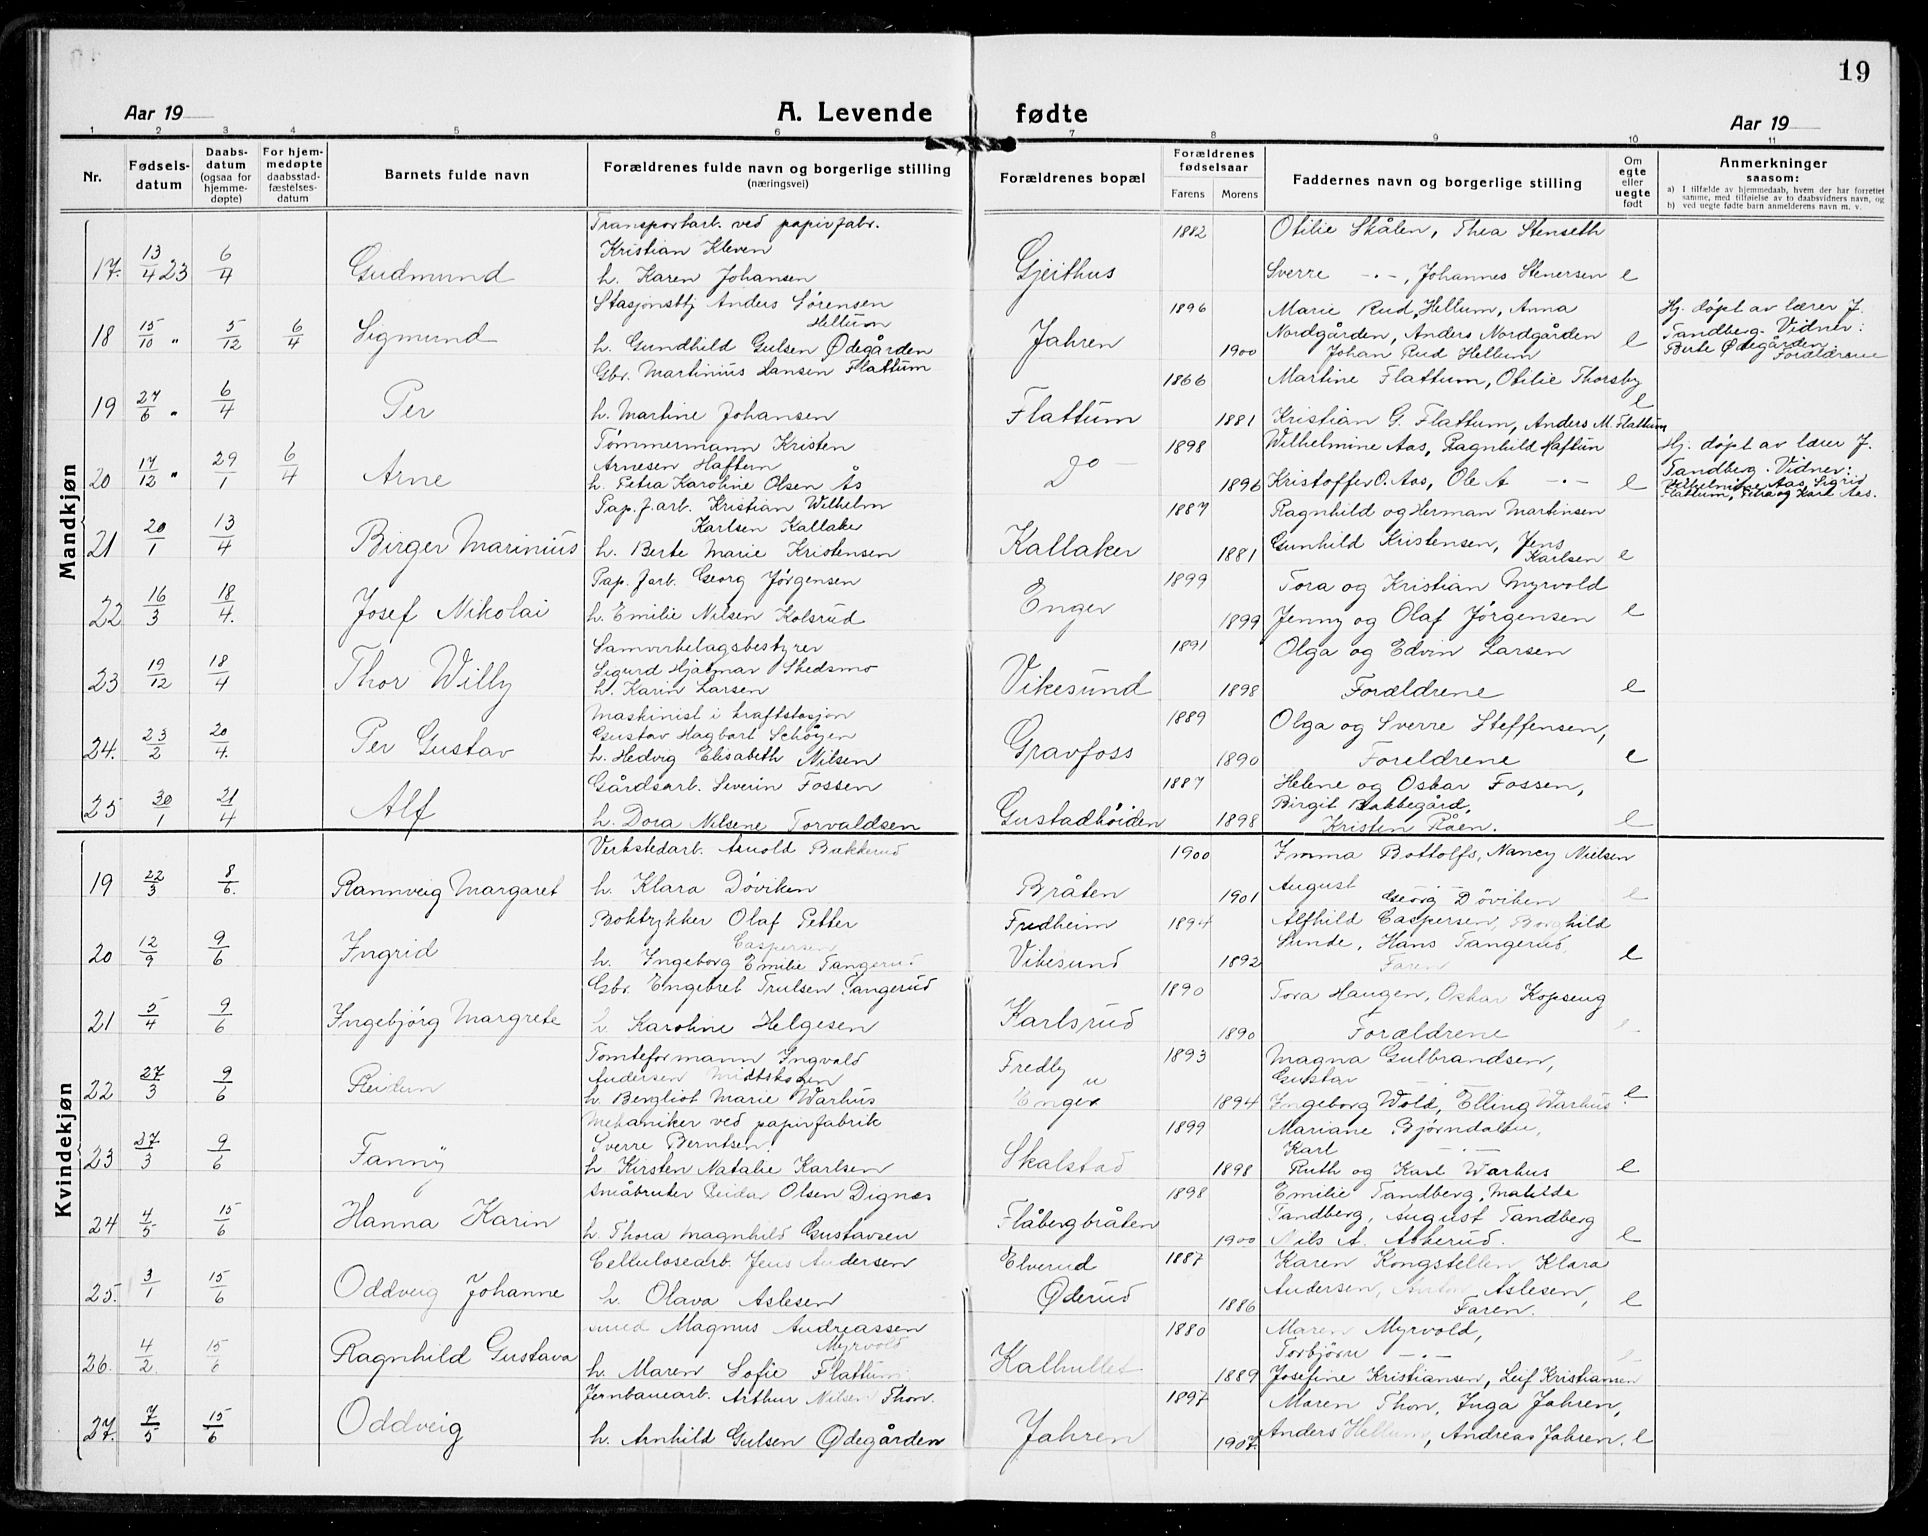 19
Aar 19
A. Levende fødte
Aar 19
1 2 3 4 5 6 7 8 9 10 11
Nr.
Fødselsdatum
Daabsdatum (ogsaa for hjemmedøpte)
For hjemmedøpte daabsstadfæstelsesdatum
Barnets fulde navn
Forældrenes fulde navn og borgerlige stilling (næringsvei)
Forældrenes bopæl
Forældrenes fødselsaar
Farens Morens
Faddernes navn og borgerlige stilling
Om egte eller uegte født
Anmerkninger saasom:
a) I tilfælde av hjemmedaab, hvem der har forrettet samme, med tilføielse av to daabsvidners navn, og
b) ved uegte fødte barn anmelderens navn m. v.
Mandkjøn
Transportarb. ved papirfabr.
17. 13/4 23 6/4 Gudmund Kristian Kleven
h. Karen Johansen
Gjeithus 1882 Otilie Skålen, Thea Stenseth
Sverre -"-, Johannes Stenersen e
18 15/10 " 5/12 6/4 Sigmund Stasjonsbtj Anders Sørensen
Hellum
h. Gundhild Gulsen Ødegården
Jahren 1896 1900 Marie Rud, Hellum, Anna
Nordgården, Anders Nordgården
Johan Rud Hellum e
Hj. døpt av lærer J.
Tandberg. Vidner:
Berte Ødegården.
Forældrene
19 27/6 " 6/4 Per Gbr. Martinius Hansen Flattum
h. Martine Johansen
Flattum 1866 1881 Martine Flattum, Otilie Thorsby
Kristian G. Flattum, Anders M. Flattum e
20 17/12 " 29/1 6/4 Arne Tømmermann Kristen
Arnesen Haftum
h. Petra Karoline Olsen Ås
Do - 1898 1896 Wilhelmine Aas, Ragnhild Haftun
Kristoffer O. Aas, Ole A -"- e
Hj. døpt av lærer J.
Tandberg. Vidner:
Vilhelmine Aas, Sigrid
Flattum, Petra og Karl Aas.
21 20/1 13/4 Birger Marinius Pap. f. arb. Kristian Wilhelm
Karlsen Kallaker
h. Berte Marie Kristensen
Kallaker 1887 1881 Ragnhild og Herman Martinsen
Gunhild Kristensen, Jens
Karlsen e
22 16/3 18/4. Josef Nikolai Pap. f. arb. Georg Jørgensen
h. Emilie Nilsen Kolsrud
Enger 1899 1899 Tora og Kristian Myrvold
Jenny og Olaf Jørgensen e
23 19/12 18/4 Thor Willy Samvirkelagsbestyrer
Sigurd Hjalmar Skedsmo
h. Karin Larsen
Vikesund 1891 1898 Olga og Edvin Larsen
Forældrene e
24. 23/2 20/4. Per Gustav Maskinist i kraftstasjon
Gustav Hagbart Schøyen
h. Hedvig Elisabeth Nilsen
Gravfoss 1889 1890 Olga og Sverre Steffensen,
Foreldrene e
25 30/1 21/4 Alf Gårdsarb. Severin Fossen
h. Dora Nilsene Torvaldsen
Gustadhøiden 1887 1898 Helene og Oskar Fossen,
Birgit Bakkegård,
Kristen Råen. e
Kvindekjøn
19 22/3 8/6. Rannveig Margaret Verkstedarb. Arnold Bækkerud
h. Klara Døviken
Bråten 1900 1901 Imma Bottolfs, Nancy Nielsen
August
Georg Døviken e
20 12/9 9/6 Ingrid Boktrykker Olaf Petter
Caspersen
h. Ingeborg Emilie Tangerud
Fredheim
Vikesund 1894 1892 Alfhild Caspersen, Borghild
Sunde, Hans Tangerud,
Faren e
21 5/4 9/6 Ingebjörg Margrete Gbr. Engebret Trulsen Tangerud
h. Karoline Helgesen
Karlsrud 1890 1890 Tora Haugen, Oskar Kopseng
Forældrene e
22 27/3 9/6 Reidun Tomteformann Ingvald
Andersen Midtskogen
h. Bergliot Marie Warhus
Fredly u
Enger 1893 1894 Magna Gulbrandsen,
Gustav
Ingeborg Wold, Elling Warhus e
23 27/3 9/6 Fanny Mekaniker ved papirfabrik
Sverre Berntsen.
h. Kirsten Natalie Karlsen
Skalstad 1899 1898 Mariane Bjørndalen,
Karl -"-
Ruth og Karl Warhus e
24 4/5 15/6 Hanna Karin Småbruker Reidar Olsen Dignes
h. Thora Magnhild Gustavsen
Flåbergbråten 1898 1900 Emilie Tandberg, Matilde
Tandberg, August Tandberg
Nils A. Askerud. e
25. 3/1 15/6 Oddveig Johanne Cellulosearb. Jens Andersen
h. Olava Aslesen
Elverud
Øderud 1887 1886 Karen Kongstellen Klara
Andersen, Anton Aslesen,
Faren. e
26. 4/2 15/6 Ragnhild Gustava Smed Magnus Andreassen
Myrvold
h. Maren Sofie Flattum
Kalhullet 1880 1889 Maren Myrvold,
Torbjørn -"-
Josefine Kristiansen, Leif Kristiansen
27. 7/5 15/6 Oddveig Jernbanearb. Arthur Nilsen Thon.
h. Arnhild Gulsen Ødegården
Jahren 1897 1907. Maren Thon, Inga Jahren,
Anders Hellum, Andreas Jahren. e